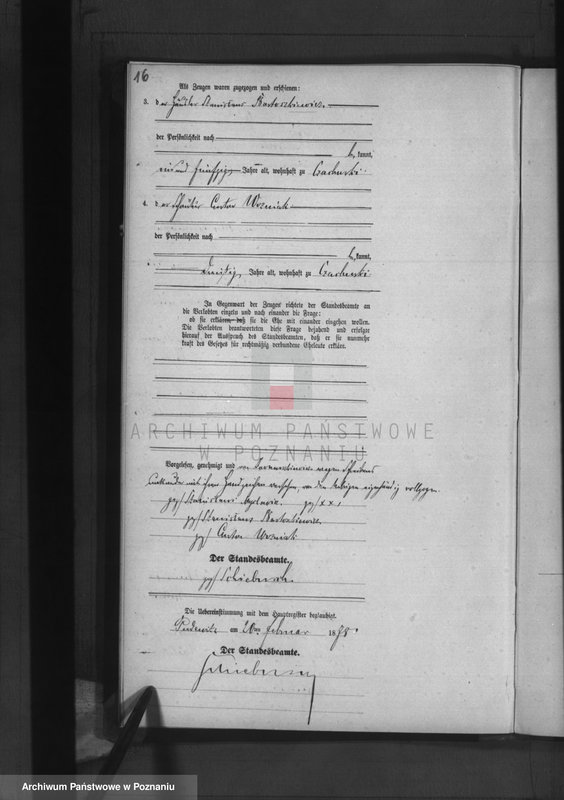 16
Als Zeugen waren zugezogen und erschienen:
3. der Häusler Stanislaus Bartoszkiewicz.
der Persönlichkeit nach
be kannt,
ein und fünfzig Jahre alt, wohnhaft zu
4. der Häusler Anton Wozniak
der Persönlichkeit nach
be kannt,
dreißig Jahre alt, wohnhaft zu
In Gegenwart der Zeugen richtete der Standesbeamte an
die Verlobten einzeln und nach einander die Frage:
ob sie erklären, daß sie die Ehe mit einander eingehen wollen.
Die Verlobten beantworteten diese Frage bejahend und erfolgte
hierauf der Ausspruch des Standesbeamten, daß er sie nunmehr
kraft des Gesetzes für rechtmäßig verbundene Eheleute erkläre.
ARCHIWUM PAŃSTWOWE
W POZNANIU
Vorgelesen, genehmigt und von wegen Schreibens
mit ihren Handzeichen versehen, von den übrigen eigenhändig vollzogen.
gez. Stanislaus gez. x x x
gez. Stanislaus Bartoszkiewicz.
gez. Anton Wozniak
Der Standesbeamte.
gez.
Die Uebereinstimmung mit dem Hauptregister beglaubigt.
Pudewitz am 20ten Februar 1878
Der Standesbeamte.
Archiwum Państwowe w Poznaniu